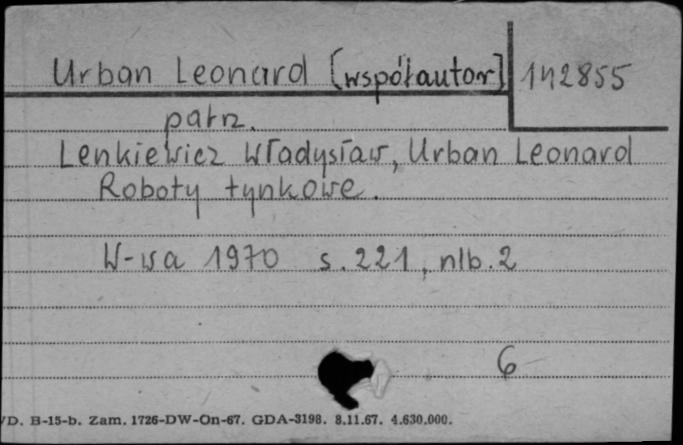 Urban Leonard [współautor] 142855
patrz.
Lenkiewicz Władysław, Urban Leonard
Roboty tynkowe.
W-wa 1970 s. 221, nlb. 2
6
/D. B-15-b. Zam. 1726-DW-On-67. GDA-3198. 8.11.67. 4.630.000.